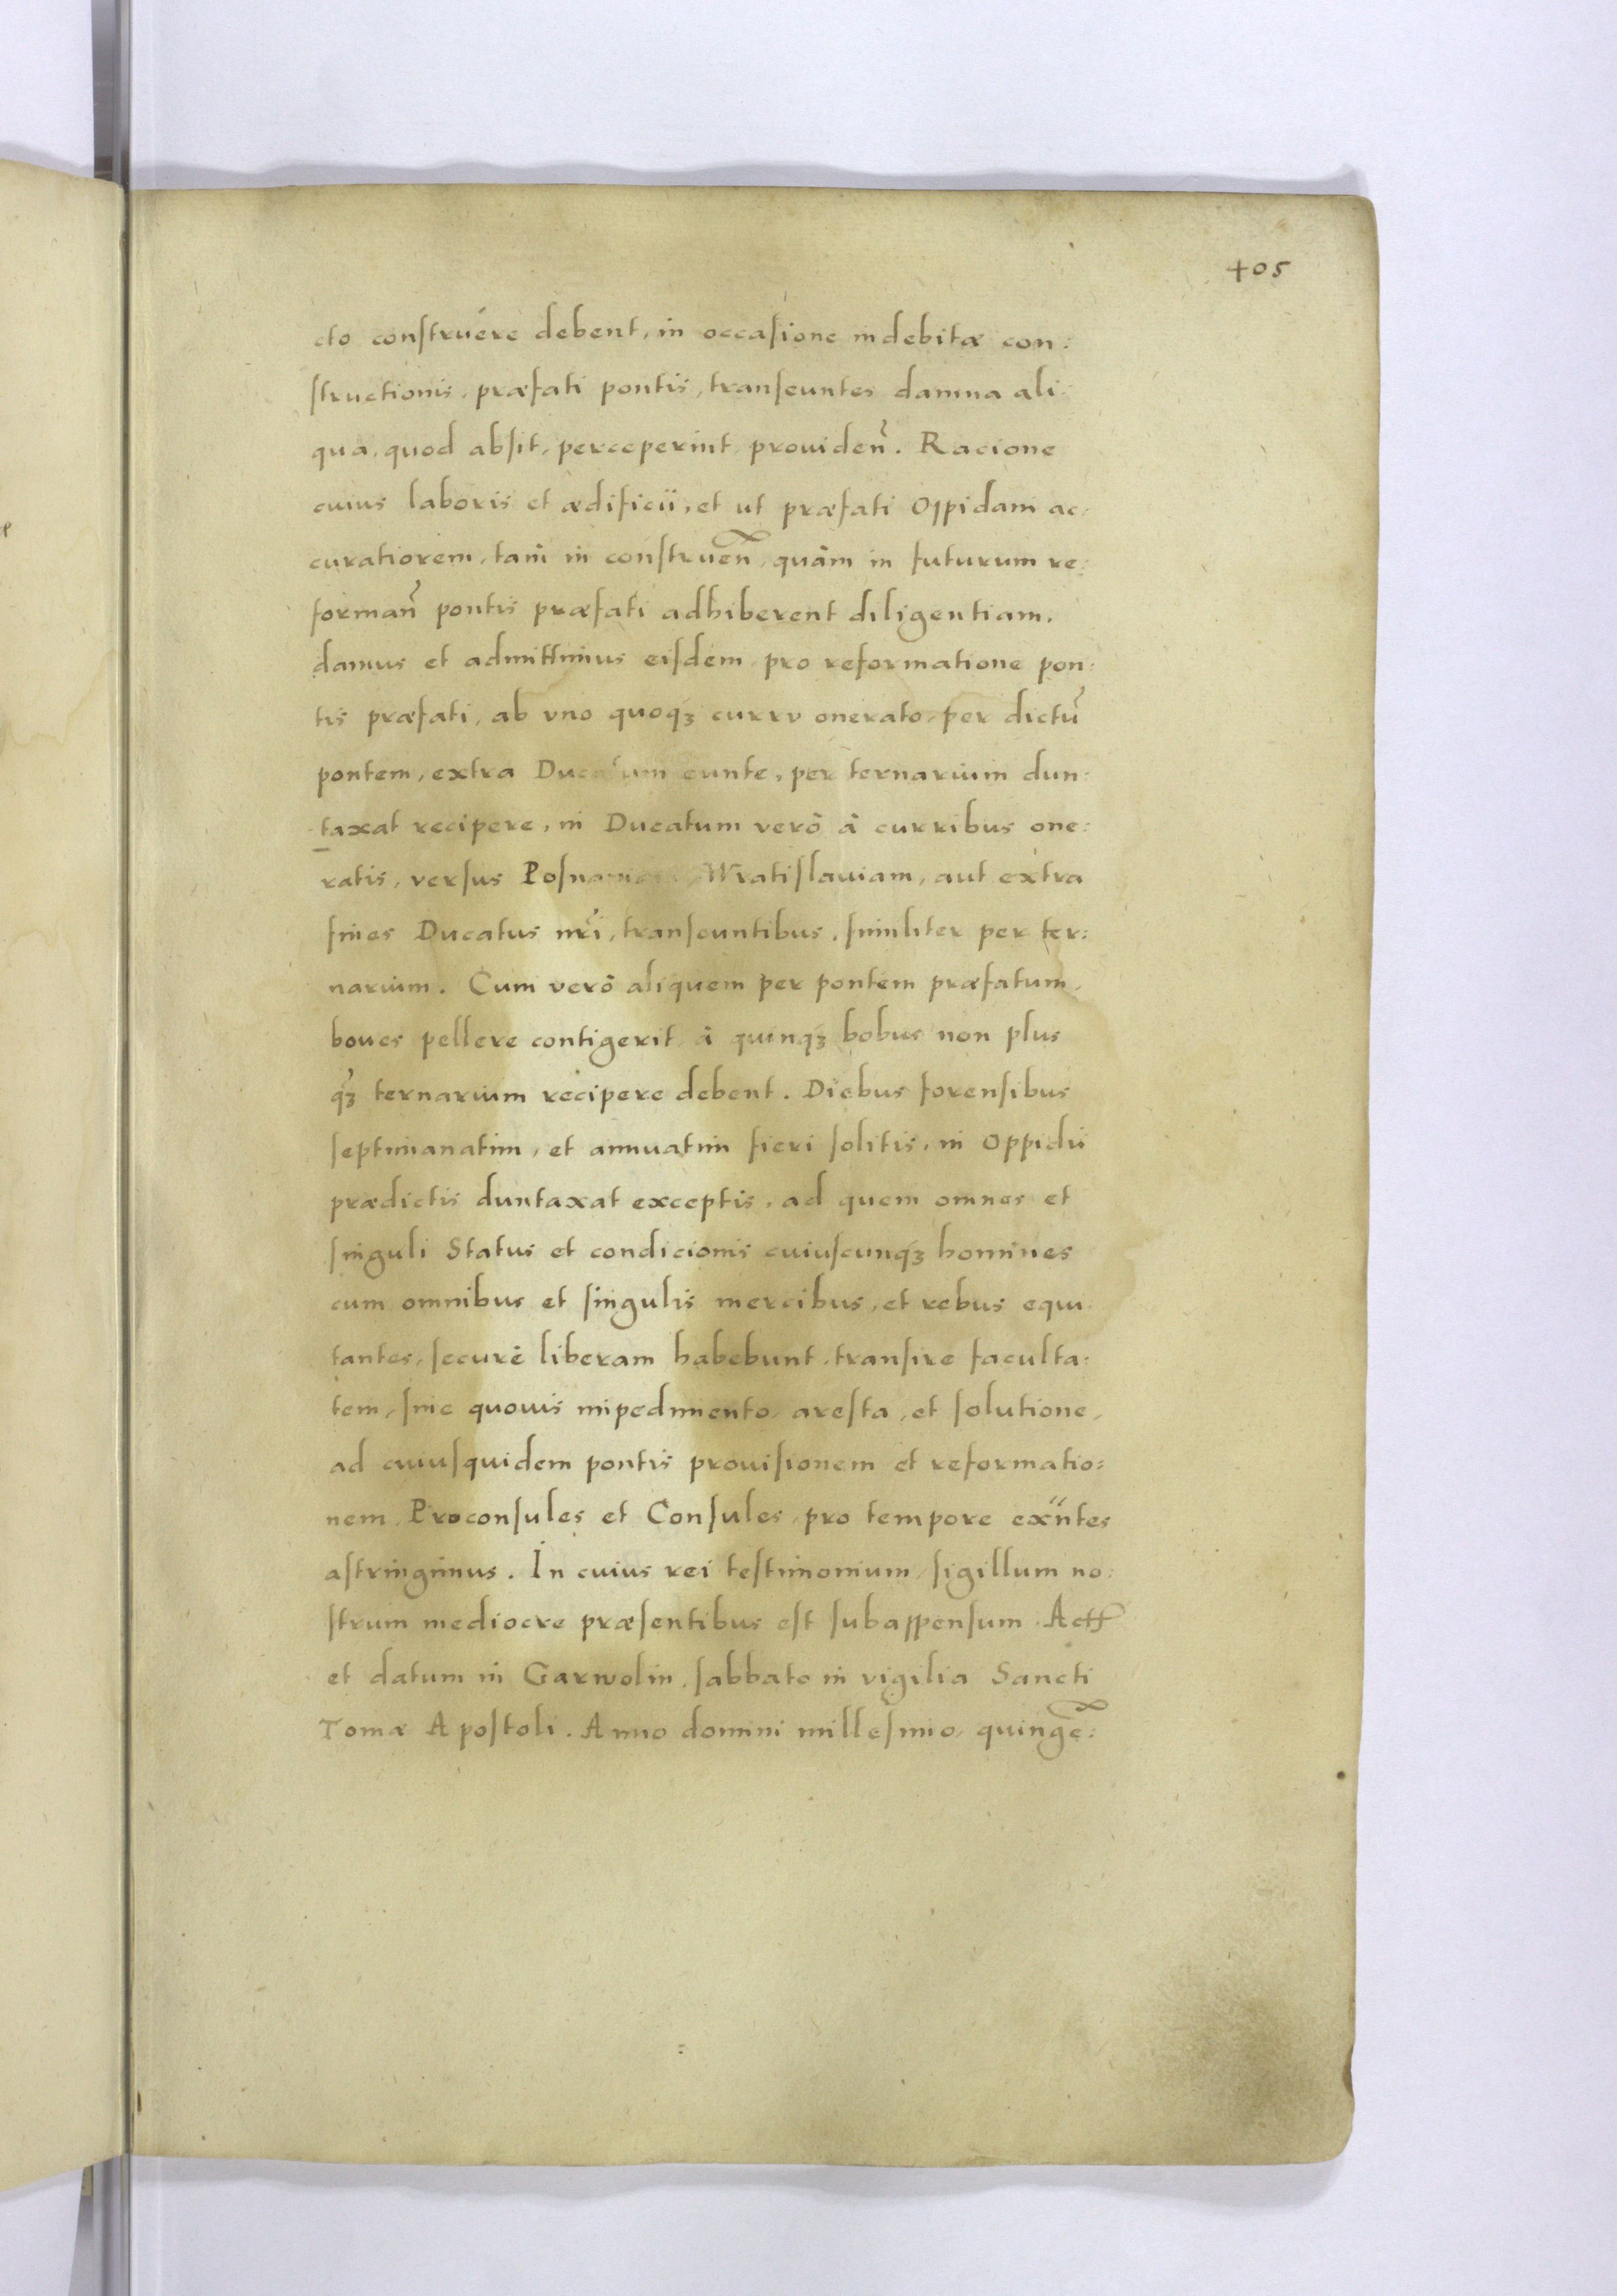 405
cto construere debent, in occasione indebitæ con:
structionis, præfati pontis, transeuntes damna ali
qua, quod absit, perceperint prouiden̄. Racione
cuius laboris et ædificii, et ut præfati Oppidani ac:
curatiorem, tam in construen̄, quàm in futurum re:
forman̄ pontis præfati adhiberent diligentiam.
damus et admittimus eisdem pro reformatione pon:
tis præfati, ab vno quoqꝫ curru onerato, per dictū
pontem, extra Ducatum eunte, per ternarium dun:
taxat recipere, in Ducatum verò à curribus one:
ratis, versus Posnaniam, Wratislauiam, aut extra
fines Ducatus nr̄i, transeuntibus, similiter per ter:
narium. Cum verò aliquem per pontem præfatum,
boues pellere contigerit, à quinqꝫ bobus non plus
qꝫ ternarium recipere debent. Diebus forensibus
septimanatim, et annuatim fieri solitis, in Oppidis
prædictis duntaxat exceptis, ad quem omnes et
singuli Status et condicionis cuiuscunqꝫ homines
cum omnibus et singulis mercibus, et rebus equi
tantes, securè liberam habebunt transire faculta:
tem, sine quouis impedimento, aresta, et solutione,
ad cuiusquidem pontis prouisionem et reformatio:
nem, Proconsules et Consules, pro tempore exn̄tes
astringimus. In cuius rei testimonium, sigillum no:
strum mediocre præsentibus est subappensum. Actū
et datum in Garwolin, sabbato in vigilia Sancti
Tomæ Apostoli. Anno domini millesimo, quingē: